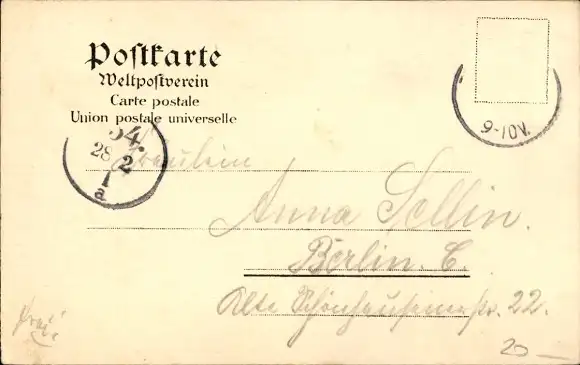 Postkarte
Weltpostverein
Carte postale
Union postale universelle
9-10V.
54.
28 2
1
a
Fräulein
Anna Sellin.
Berlin. C.
Alte Schönhauserstr. 22.
20 —